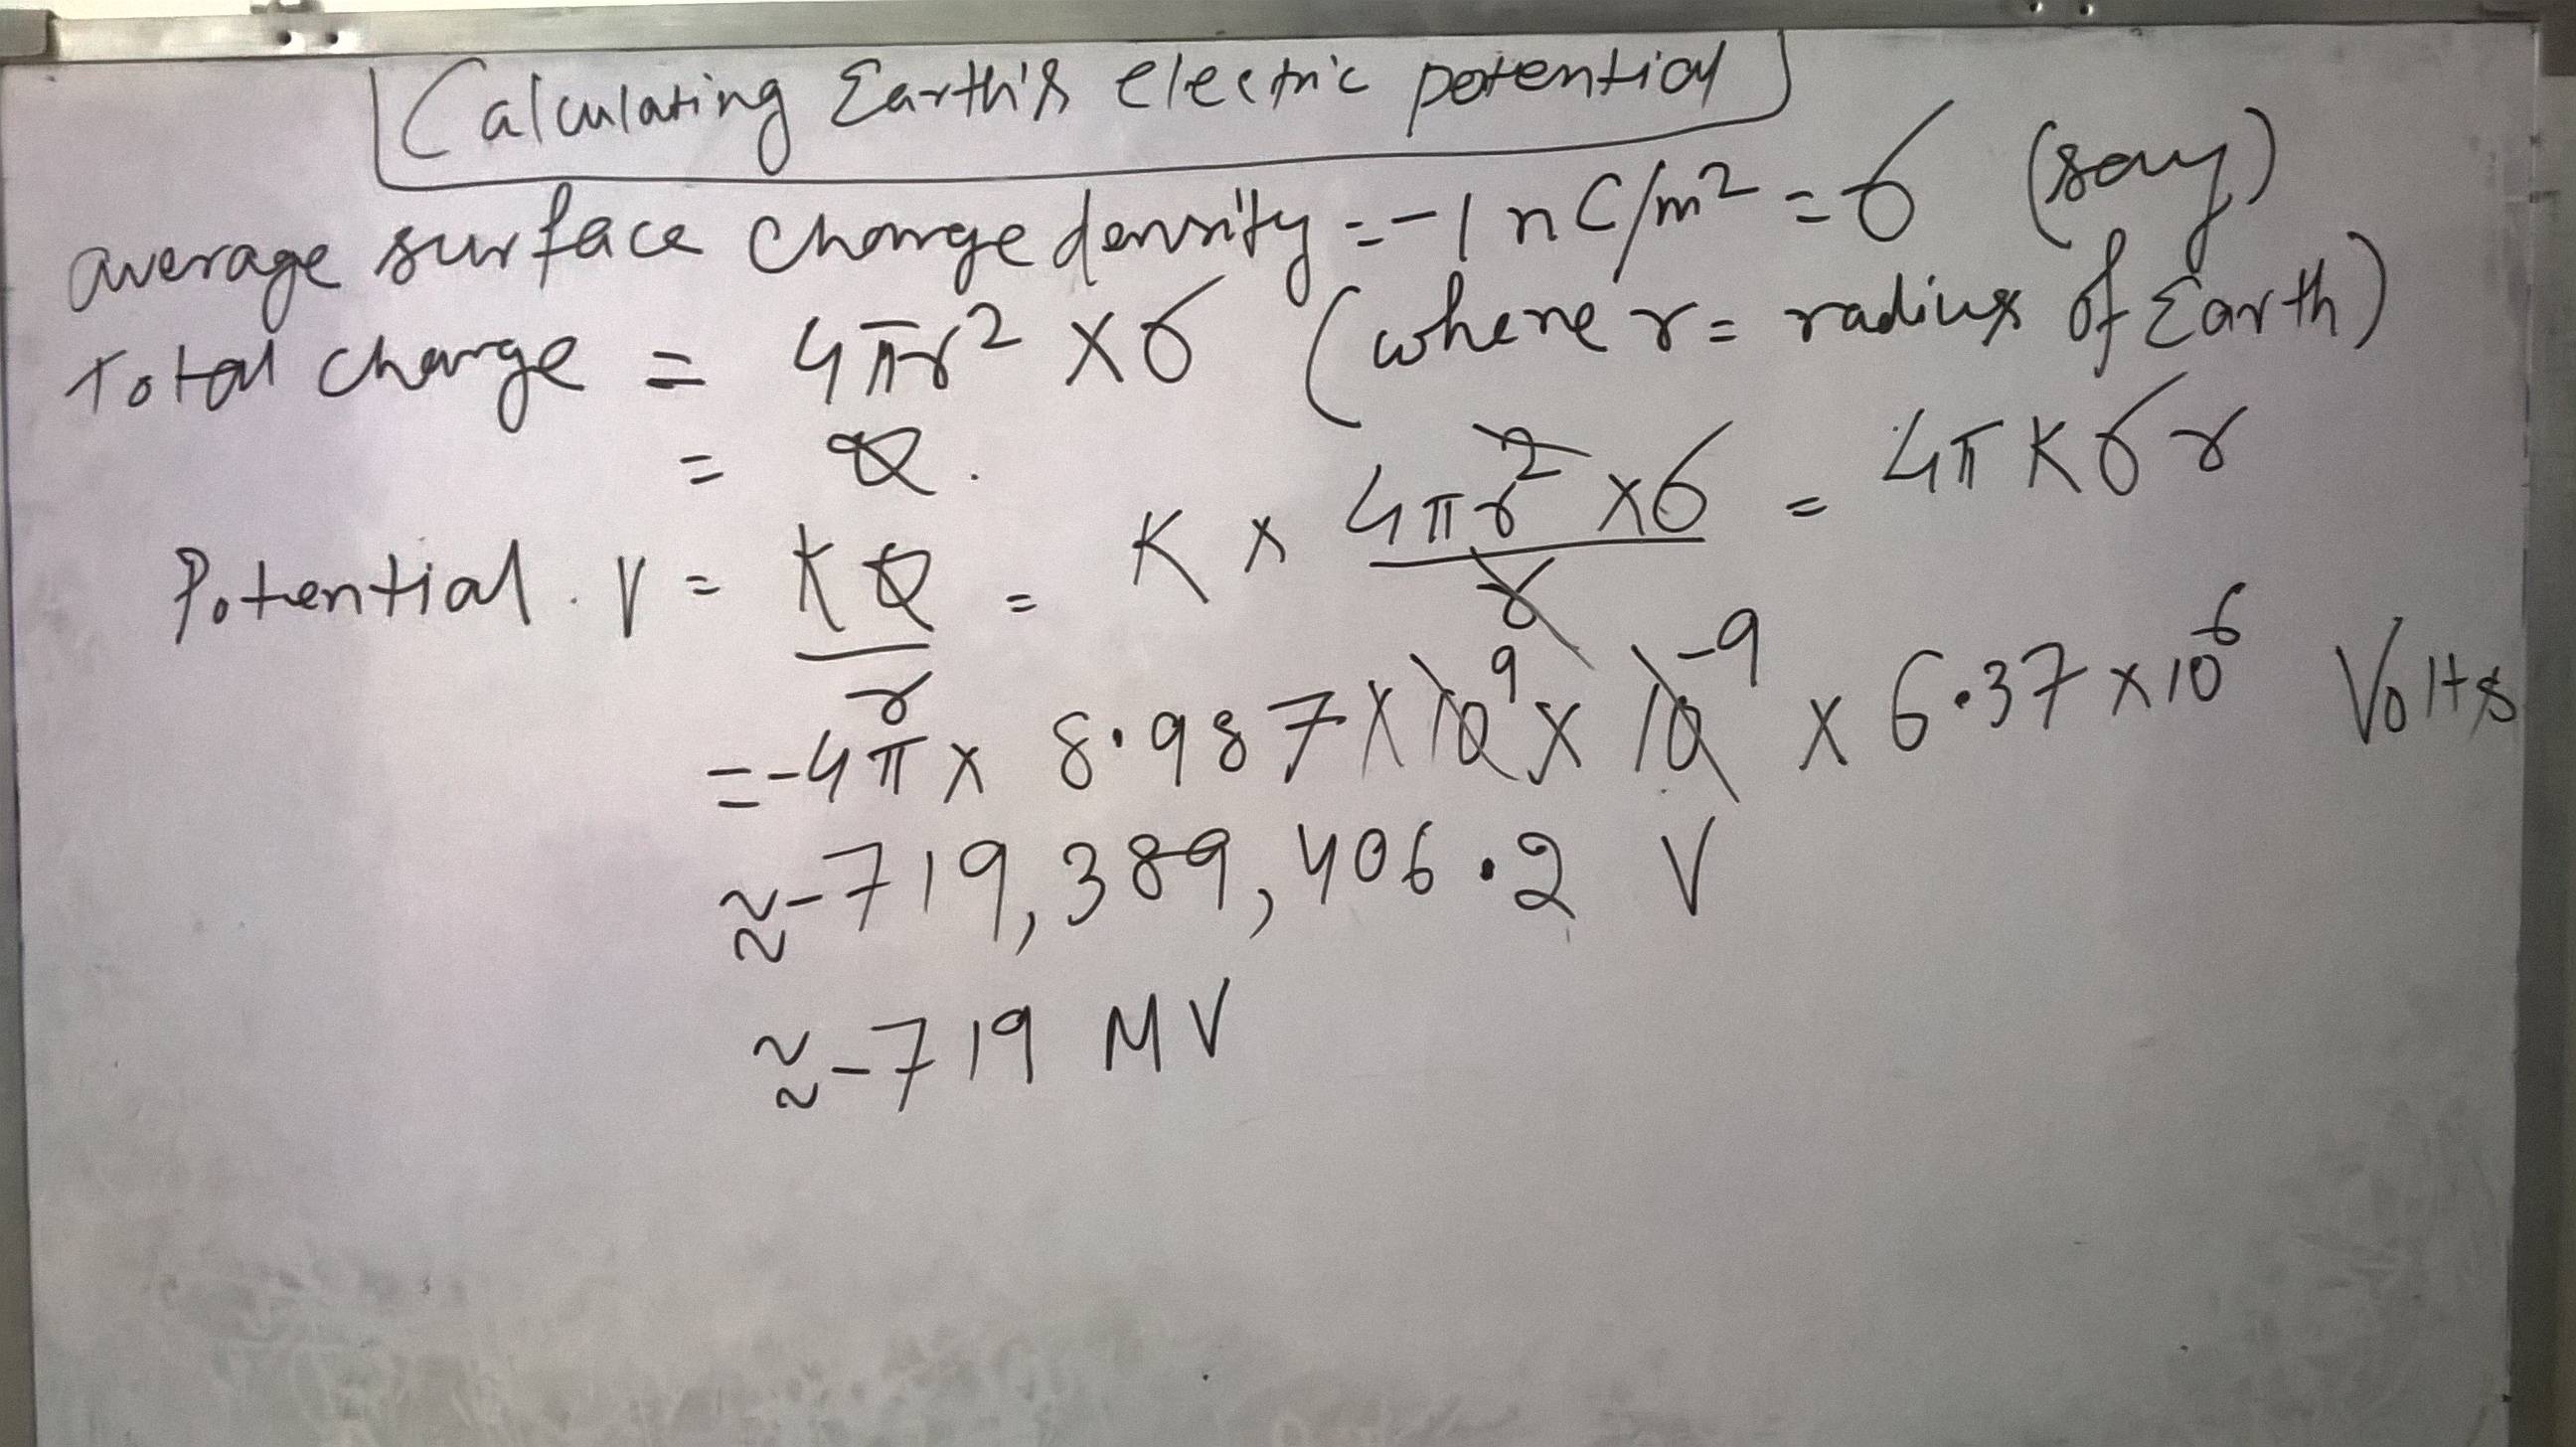 Calculating Earth's electric potential
average surface charge density = -1 nC/m² = σ (say)
Total charge = 4πr² × σ (where r = radius of Earth)
= Q.
Potential V = KQ/r = K × 4πr² × σ/r = 4πKσr
= -4π × 8.987 × 10⁹ × 10⁻⁹ × 6.37 × 10⁶ Volts
≈ -719,389,406.2 V
≈ -719 MV